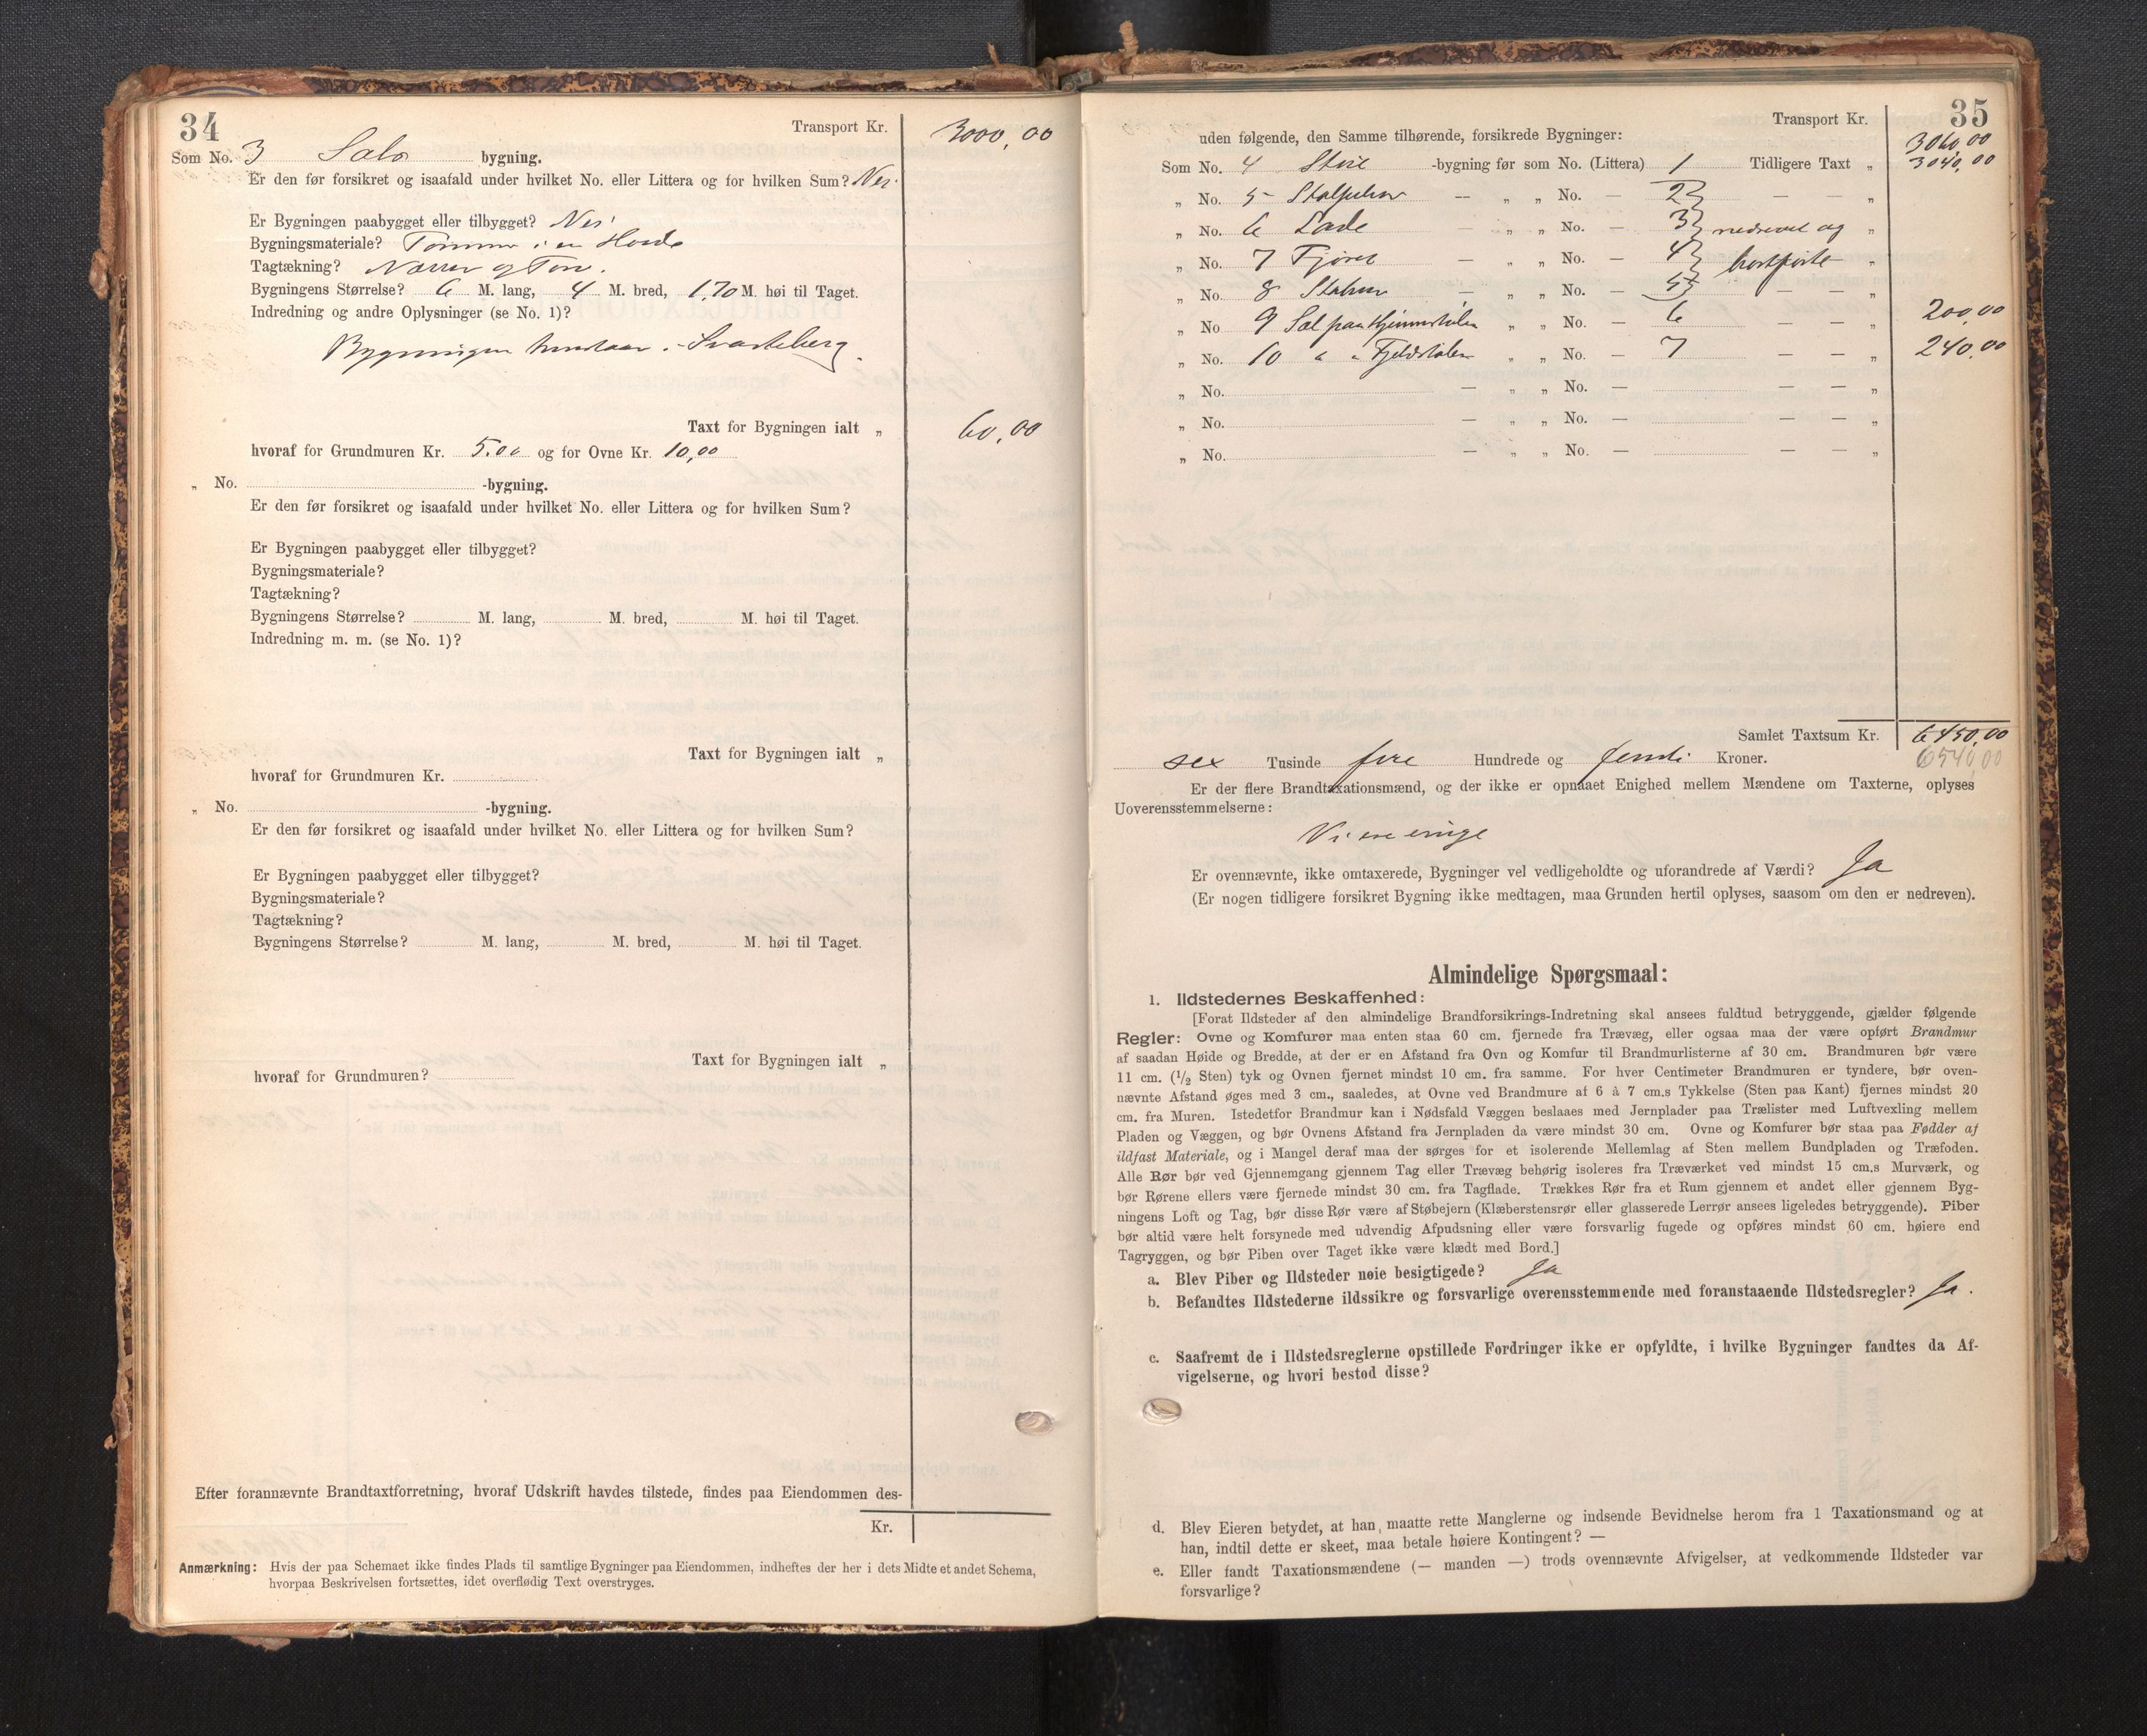 34
Transport Kr. 3000,00
Som No. 3 Sels bygning.
Er den før forsikret og isaafald under hvilket No. eller Littera og for hvilken Sum? Nei.
Er Bygningen paabygget eller tilbygget? Nei
Bygningsmateriale? Tømmer i en Høide
Tagtækning? Næver og Torv.
Bygningens Størrelse? 6 M. lang, 4 M. bred, 1,70 M. høi til Taget.
Indredning og andre Oplysninger (se No. 1)?
Bygningen
Taxt for Bygningen ialt „ 60,00
hvoraf for Grundmuren Kr. 5.00 og for Ovne Kr. 10,00
„ No. -bygning.
Er den før forsikret og isaafald under hvilket No. eller Littera og for hvilken Sum?
Er Bygningen paabygget eller tilbygget?
Bygningsmateriale?
Tagtækning?
Bygningens Størrelse? M. lang, M. bred, M. høi til Taget.
Indredning m. m. (se No. 1)?
Taxt for Bygningen ialt „
hvoraf for Grundmuren Kr.
„ No. -bygning.
Er den før forsikret og isaafald under hvilket No. eller Littera og for hvilken Sum?
Er Bygningen paabygget eller tilbygget?
Bygningsmateriale?
Tagtækning?
Bygningens Størrelse? M. lang, M. bred, M. høi til Taget.
Taxt for Bygningen ialt „
hvoraf for Grundmuren?
Efter forannævnte Brandtaxtforretning, hvoraf Udskrift havdes tilstede, findes paa Eiendommen des-
Kr.
Anmærkning: Hvis der paa Schemaet ikke findes Plads til samtlige Bygninger paa Eiendommen, indheftes der her i dets Midte et andet Schema,
hvorpaa Beskrivelsen fortsættes, idet overflødig Text overstryges.
35
Transport Kr. 3060,00
uden følgende, den Samme tilhørende, forsikrede Bygninger:
Som No. 4 Stue -bygning før som No. (Littera) 1 Tidligere Taxt „ 3040,00
„ No. 5 — „ „ No. — 2 — — „
„ No. 6 Lade — „ „ No. — 3 nedrevet og „
„ No. 7 Fjøset — „ „ No. — 4 bortførte „
„ No. 8 — „ „ No. — 5 — — „
„ No 9 Sel paa „ „ No. — 6 — — „ 200,00
„ No. 10 " " Fjeldstølen „ „ No. — 7 — — „ 240,00
„ No. — „ „ No. — — — „
„ No. — „ „ No. — — — „
„ No. — „ „ No. — — — „
Samlet Taxtsum Kr. 6450,00
sex Tusinde fire Hundrede og femti Kroner. 6540,00
Er der flere Brandtaxationsmænd, og der ikke er opnaaet Enighed mellem Mændene om Taxterne, oplyses
Uoverensstemmelserne:
Vi ere enige
Er ovennævnte, ikke omtaxerede, Bygninger vel vedligeholdte og uforandrede af Værdi? Ja
(Er nogen tidligere forsikret Bygning ikke medtagen, maa Grunden hertil oplyses, saasom om den er nedreven).
Almindelige Spørgsmaal:
1. Ildstedernes Beskaffenhed:
[Forat Ildsteder af den almindelige Brandforsikrings-Indretning skal ansees fuldtud betryggende, gjælder følgende
Regler: Ovne og Komfurer maa enten staa 60 cm. fjernede fra Trævæg, eller ogsaa maa der være opført Brandmur
af saadan Høide og Bredde, at der er en Afstand fra Ovn og Komfur til Brandmurlisterne af 30 cm. Brandmuren bør være
11 cm. (1/2 Sten) tyk og Ovnen fjernet mindst 10 cm. fra samme. For hver Centimeter Brandmuren er tyndere, bør oven-
nævnte Afstand øges med 3 cm., saaledes, at Ovne ved Brandmure af 6 à 7 cm.s Tykkelse (Sten paa Kant) fjernes mindst 20
cm. fra Muren. Istedetfor Brandmur kan i Nødsfald Væggen beslaaes med Jernplader paa Trælister med Luftvexling mellem
Pladen og Væggen, og bør Ovnens Afstand fra Jernpladen da være mindst 30 cm. Ovne og Komfurer bør staa paa Fødder af
ildfast Materiale, og i Mangel deraf maa der sørges for et isolerende Mellemlag af Sten mellem Bundpladen og Træfoden.
Alle Rør bør ved Gjennemgang gjennem Tag eller Trævæg behørig isoleres fra Træværket ved mindst 15 cm.s Murværk, og
bør Rørene ellers være fjernede mindst 30 cm. fra Tagflade. Trækkes Rør fra et Rum gjennem et andet eller gjennem Byg-
ningens Loft og Tag, bør disse Rør være af Støbejern (Klæberstensrør eller glasserede Lerrør ansees ligeledes betryggende). Piber
bør altid være helt forsynede med udvendig Afpudsning eller være forsvarlig fugede og opføres mindst 60 cm. høiere end
Tagryggen, og bør Piben over Taget ikke være klædt med Bord.]
a. Blev Piber og Ildsteder nøie besigtigede? Ja
b. Befandtes Ildstederne ildssikre og forsvarlige overensstemmende med foranstaaende Ildstedsregler? Ja.
c. Saafremt de i Ildstedsreglerne opstillede Fordringer ikke er opfyldte, i hvilke Bygninger fandtes da Af-
vigelserne, og hvori bestod disse?
d. Blev Eieren betydet, at han, maatte rette Manglerne og indsende Bevidnelse herom fra 1 Taxationsmand og at
han, indtil dette er skeet, maa betale høiere Kontingent? —
e. Eller fandt Taxationsmændene (— manden —) trods ovennævnte Afvigelser, at vedkommende Ildsteder var
forsvarlige?